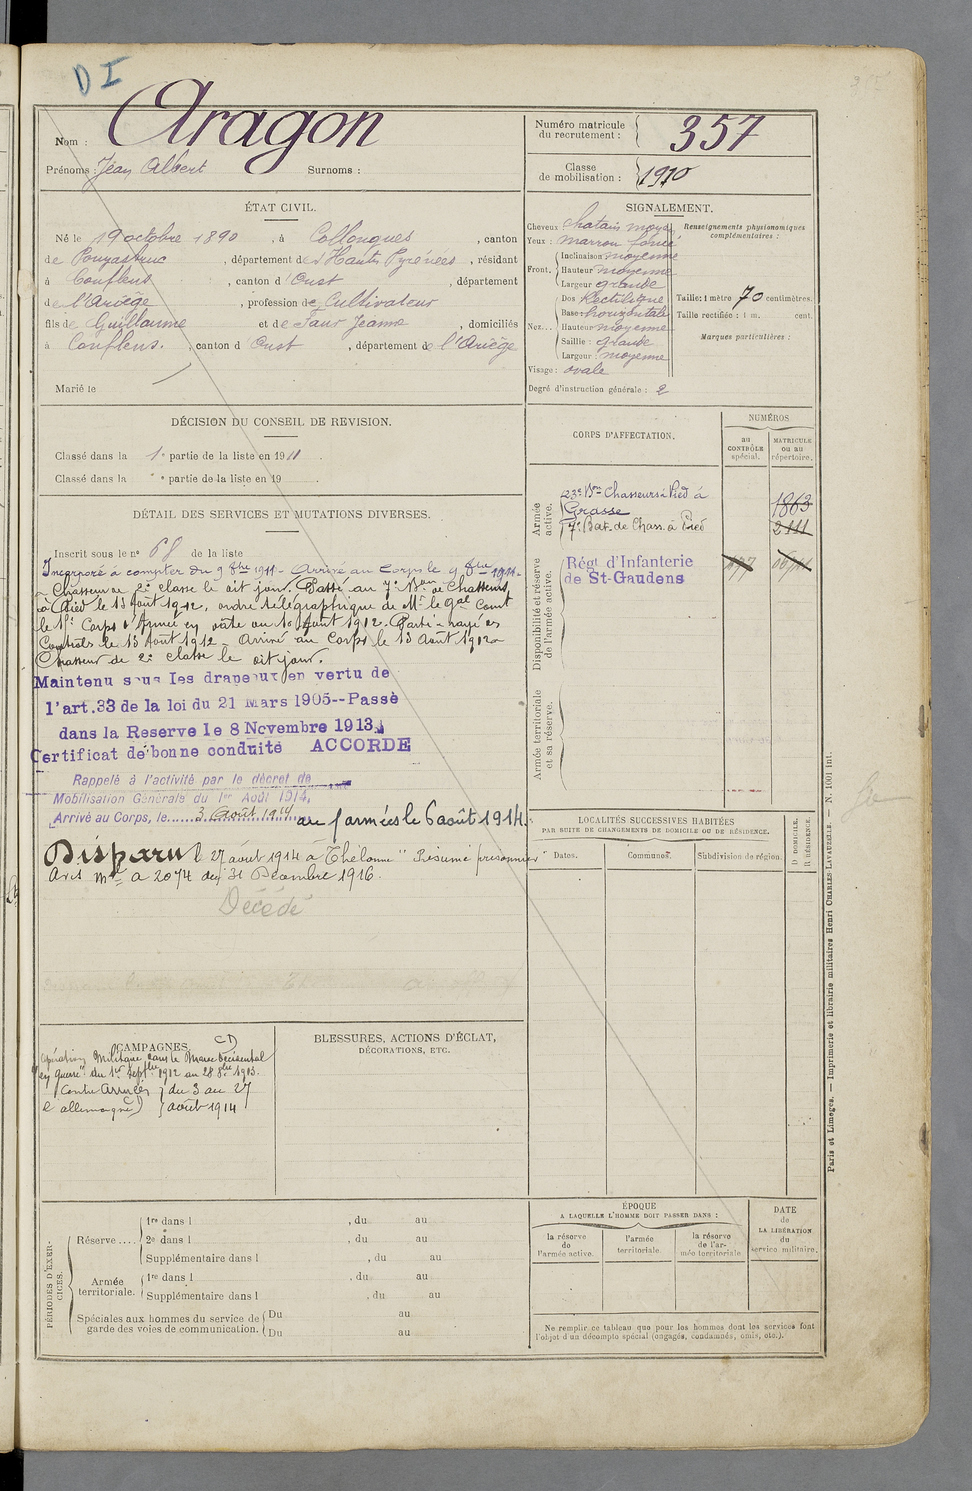 D I
Nom : Aragon
Prénoms : Jean Albert Surnoms :
Numéro matricule du recrutement : 357
Classe de mobilisation : 1910
ÉTAT CIVIL.
Né le 19 octobre 1890, à Collongues, canton
de Pouyastruc, département des Hautes Pyrénées, résidant
à Couflens, canton d'Oust, département
de l'Ariège, profession de Cultivateur
fils de Guillaume et de Faur Jeanne, domiciliés
à Couflens, canton d'Oust, département de l'Ariège
Marié le
SIGNALEMENT.
Cheveux chatain moyen
Yeux : marron foncé
Front. Inclinaison moyenne
Hauteur moyenne
Largeur grande
Nez... Dos Rectiligne
Base horizontale
Hauteur moyenne
Saillie : grande
Largeur : moyenne
Visage : ovale
Degré d'instruction générale : 2
Renseignements physionomiques complémentaires :
Taille : 1 mètre 70 centimètres.
Taille rectifiée : 1 m. cent.
Marques particulières :
DÉCISION DU CONSEIL DE REVISION.
Classé dans la 1e partie de la liste en 1911.
Classé dans la e partie de la liste en 19
DÉTAIL DES SERVICES ET MUTATIONS DIVERSES.
Inscrit sous le no 68 de la liste
Incorporé à compter du 9 8bre 1911. Arrivé au Corps le 9 8bre 1911.
Chasseur de 2e classe le dit jour. Passé au 7e Bon de Chasseurs
à Pied le 13 Août 1912, ordre télégraphique de Mr le Gal Comt
le Corps d'Armée en date du 10 Août 1912. Parti - rayé des
Contrôles le 13 Août 1912. Arrivé au Corps le 13 Août 1912
Chasseur de 2e classe le dit jour.
Maintenu sous les drapeaux en vertu de
l'art.33 de la loi du 21 Mars 1905--Passé
dans la Reserve le 8 Novembre 1913
Certificat de bonne conduite ACCORDE
Rappelé à l'activité par le décret de
Mobilisation Générale du 1er Août 1914,
Arrivé au Corps, le 3 Août 1914 aux armées le 6 août 1914.
Disparu le 27 août 1914 à Thélonne " Présumé prisonnier "
Avis Mel a 2074 du 31 Décembre 1916.
Décédé
CORPS D'AFFECTATION.
NUMÉROS
au CONTRÔLE spécial.
MATRICULE ou au répertoire.
Armée active.
23e Bon Chasseurs à Pied à Grasse 1863
7e Bat. de Chass. à Pied 2111
Disponibilité et réserve de l'armée active.
Régt d'Infanterie
de St-Gaudens
Armée territoriale et sa réserve.
LOCALITÉS SUCCESSIVES HABITÉES
PAR SUITE DE CHANGEMENTS DE DOMICILE OU DE RÉSIDENCE.
Dates. Communes. Subdivision de région. D DOMICILE. R RÉSIDENCE.
CAMPAGNES.
Opérations Militaires dans le Maroc Occidental
"en guerre" du 1er Septbre 1912 au 28 8bre 1913.
Contre du 3 au 27
l'allemagne août 1914
BLESSURES, ACTIONS D'ÉCLAT,
DÉCORATIONS, ETC.
PÉRIODES D'EXERCICES.
Réserve .... 1re dans l , du au
2e dans l , du au
Supplémentaire dans l , du au
Armée territoriale. 1re dans l , du au
Supplémentaire dans l , du au
Spéciales aux hommes du service de garde des voies de communication. Du au
Du au
ÉPOQUE
A LAQUELLE L'HOMME DOIT PASSER DANS :
la réserve de l'armée active.
l'armée territoriale.
la réserve de l'armée territoriale
DATE de LA LIBÉRATION du service militaire.
Ne remplir ce tableau que pour les hommes dont les services font
l'objet d'un décompte spécial (engagés, condamnés, omis, etc.).
Paris et Limoges. — Imprimerie et librairie militaires Henri CHARLES-LAVAUZELLE. — N. 1001 int.